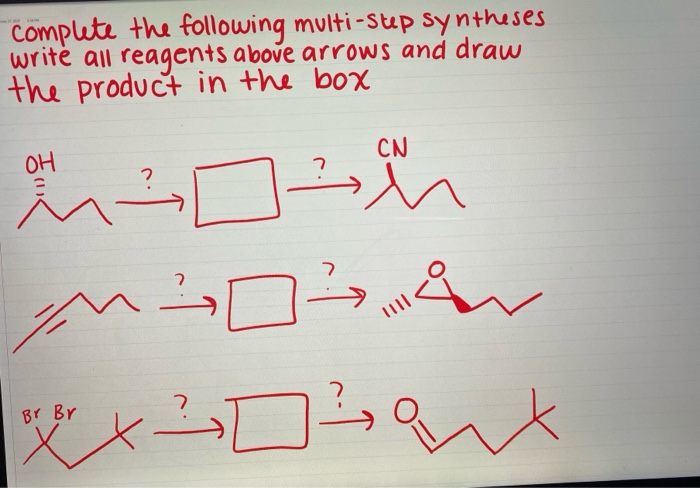 Complete the following multi-step syntheses
write all reagents above arrows and draw
the product in the box
CN
OH
?
?
?
?
O
Br Br
?
?
O